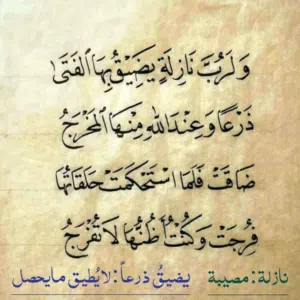 وَلَرُبَّ نَازِلَةٍ يَضِيْقُ بِهَا الْفَتَى
ذَرْعًا وَعِنْدَ اللهِ مِنْهَا الْمَخْرَجُ
ضَاقَتْ فَلَمَّا اسْتَحْكَمَتْ حَلَقَاتُهَا
فُرِجَتْ وَكُنْتُ أَظُنُّهَا لَا تُفْرَجُ
نازلة: مصيبة يضيقُ ذرعاً: لايُطيق مايحصل